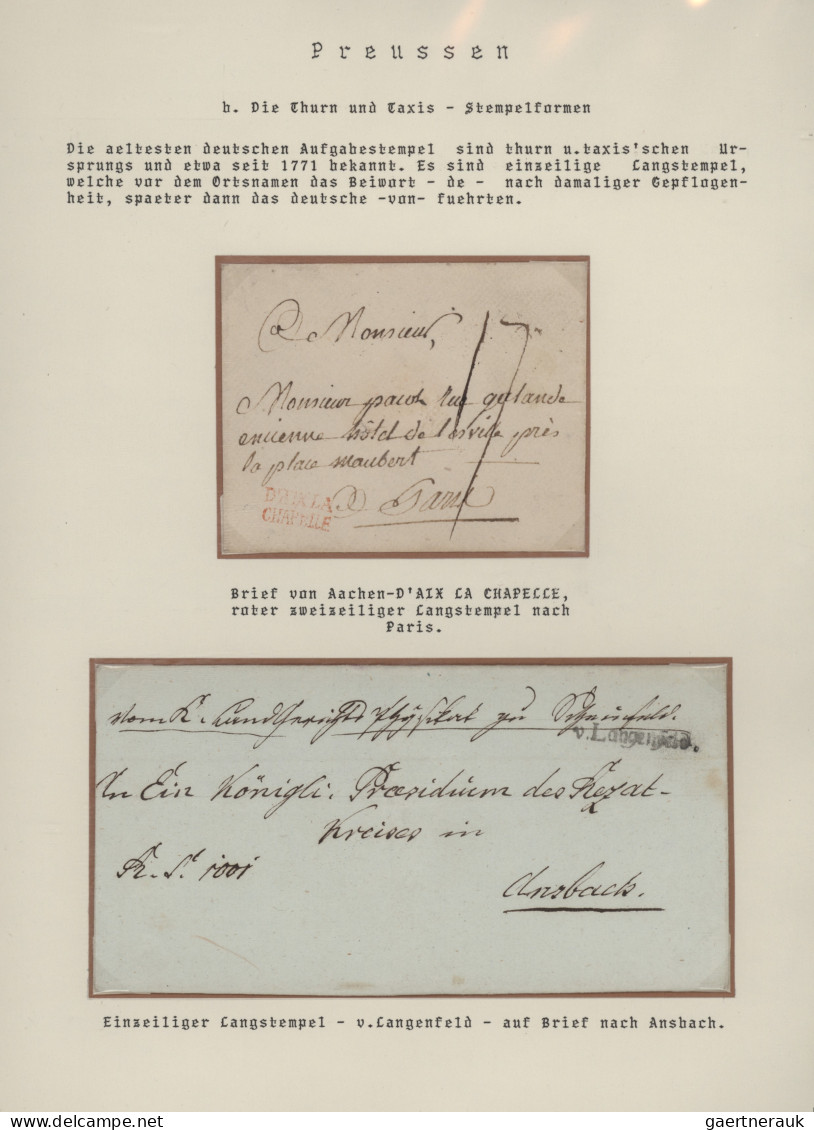 Preussen
b. Die Thurn und Taxis - Stempelformen
Die aeltesten deutschen Aufgabestempel sind thurn u.taxis'schen Ur-
sprungs und etwa seit 1771 bekannt. Es sind einzeilige Langstempel,
welche vor dem Ortsnamen das Beiwort - de - nach damaliger Gepflogen-
heit, spaeter dann das deutsche -von- fuehrten.
A Monsieur,
17
Monsieur pacot Rue galande
encienne hôtel de lesville près
la place maubert
D'AIX LA
CHAPELLE
A Paris
Brief von Aachen-D'AIX LA CHAPELLE,
roter zweizeiliger Langstempel nach
Paris.
Vom K. Landgerichts Physikat zu Scheinfeld.
v.Langenfeld.
An Ein Königli. Præsidium des Rezat-
Kreises in
R. S. 1001
Ansbach.
Einzeiliger Langstempel - v.Langenfeld - auf Brief nach Ansbach.
gaertnerauk